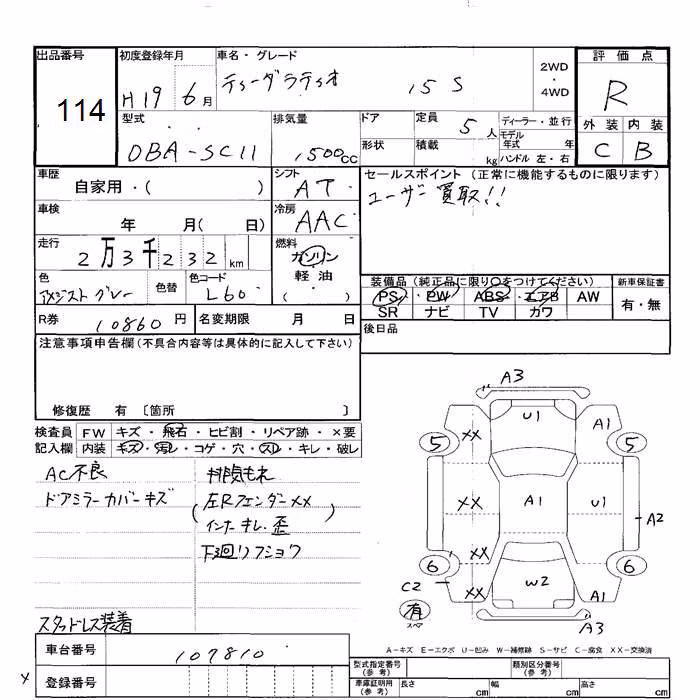 出品番号
114
初度登録年月
H19 6月
車名・グレード
ティーダラティオ 15 S
2WD
・
4WD
評価点
R
外装 内装
C B
型式
DBA-SC11
排気量
1500cc
ドア
形状
定員 5人
積載 kg
ディーラー・並行
モデル
年式 年
ハンドル 左・右
車歴
自家用・( )
シフト
AT
セールスポイント (正常に機能するものに限ります)
ユーザー買取!!
車検
年 月( 日)
冷房
AAC
走行
2万3千232km
燃料
ガソリン
軽油
( )
色
アメジストグレー
色替
色コード
L60
装備品(純正品に限り○をつけてください)
PS・PW・ABS・エアB AW
SR ナビ TV カワ
新車保証書
有・無
R券 10860円
名変期限 月 日
後日品
注意事項申告欄(不具合内容等は具体的に記入して下さい)
修復歴 有 〔箇所 〕
検査員 FW キズ・飛石・ヒビ割・リペア跡・×要
記入欄 内装 キズ・汚レ・コゲ・穴・スレ・キレ・破レ
AC不良
ドアミラーカバーキズ
排気モレ
(左Rフェンダー××
インナーキレ・歪)
下廻リフショク
スタッドレス装着
A3
U1
××
A1
5
5
××
A1
U1
A2
××
6
6
C2
××
W2
A1
有
スペア
A3
A-キズ E-エクボ U-凹み W-補修跡 S-サビ C-腐食 XX-交換済
車台番号 107810
登録番号
型式指定番号
(参考)
類別区分番号
(参考)
車庫証明用
(参考)
長さ cm 幅 cm 高さ cm
×